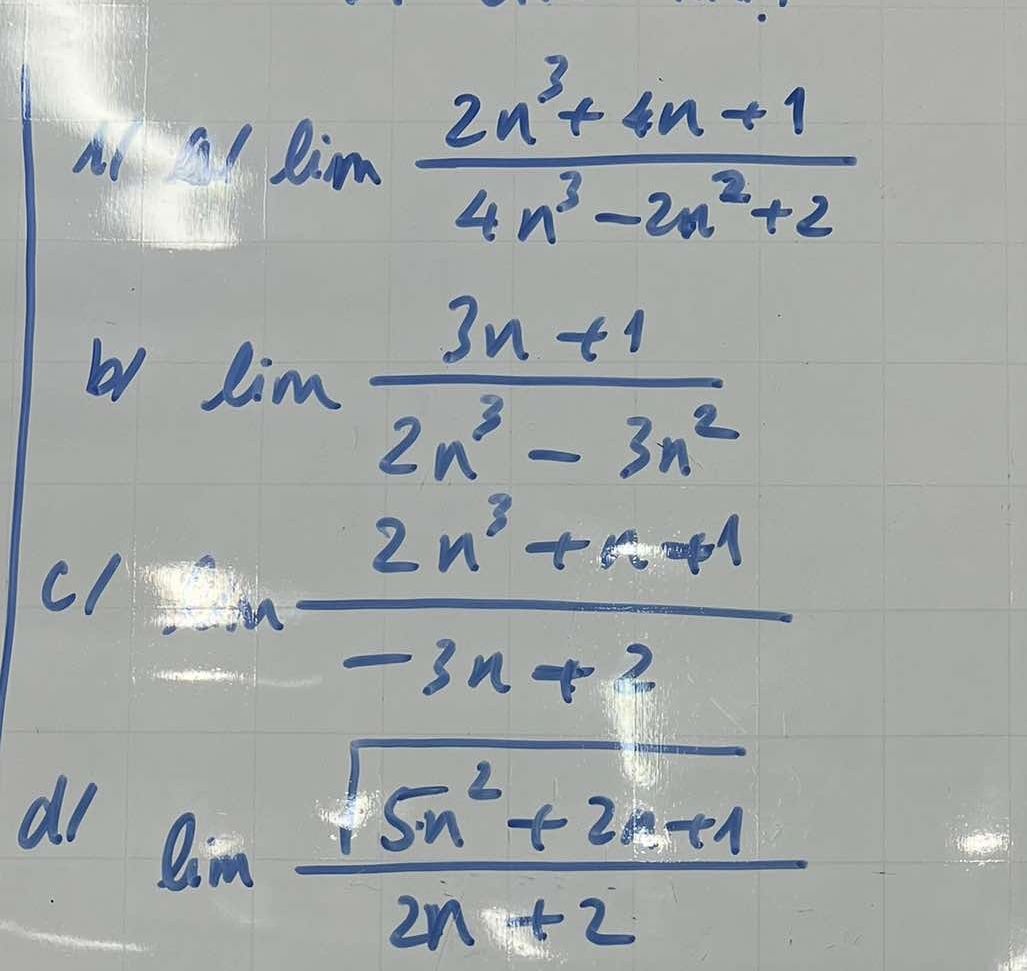 1/ a/ lim (2n³ + 4n + 1)/(4n³ - 2n² + 2)
b/ lim (3n + 1)/(2n³ - 3n²)
c/ lim (2n³ + n + 1)/(-3n + 2)
d/ lim √(5n² + 2n + 1)/(2n + 2)